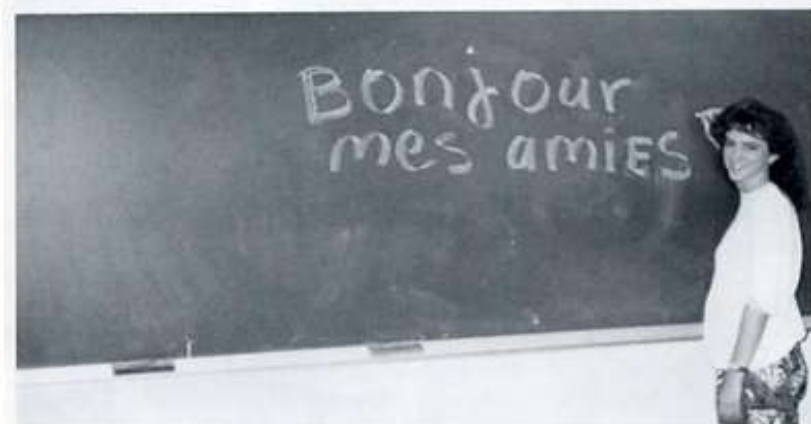 Bonjour
mes amiES